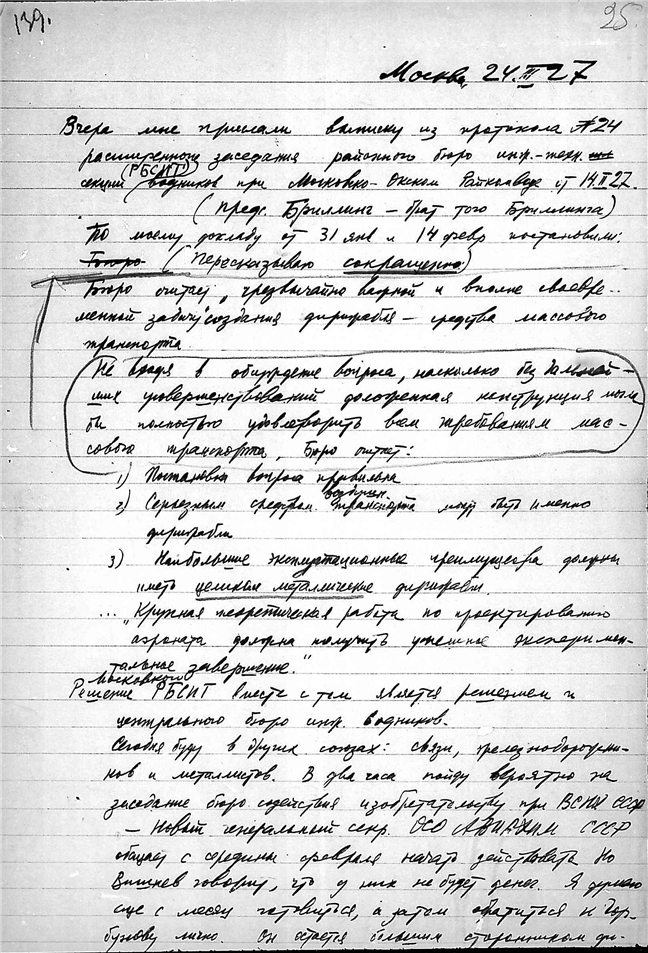 139.
25.
Москва, 24.III 27
Вчера мне прислали выписку из протокола №24
расширенного заседания районного бюро инж.-техн.
(РБСИТ)
секции водников при Московско-Окском Райкомводе от 14 II 27.
(пред. Бриллинг – брат того Бриллинга)
По моему докладу от 31 янв и 14 февр постановили:
(Пересказываю сокращенно)
Бюро считает, чрезвычайно важной и вполне своевре-
менной задачу создания дирижабля – средства массового
транспорта
Не входя в обсуждение вопроса, насколько без дальней-
ших усовершенствований доложенная конструкция могла
бы полностью удовлетворить всем требованиям мас-
сового транспорта, Бюро считает:
1) Постановка вопроса правильна
воздушн.
2) Серьезным средством транспорта могут быть именно
дирижабли
3) Наибольшие эксплуатационные преимущества должны
иметь целиком металлические дирижабли.
... "Крупная теоретическая работа по проектированию
аэроната должна получить успешное эксперимен-
тальное завершение."
Московского
Решение РБСИТ вместе с тем является решением и
центрального бюро инж. водников.
Сегодня буду в других союзах: связи, железнодорожни-
ков и металлистов. В два часа пойду вероятно на
заседание бюро содействия изобретательству при ВСНХ СССР
– Новый генеральный секр. ОСО АВИАХИМ СССР
обещает с средины февраля начать действовать Но
Вишнев говорит, что у них не будет денег. Я думаю
еще с месяц готовиться, а затем обратиться к Гор-
бунову лично. Он остается большим сторонником ди-